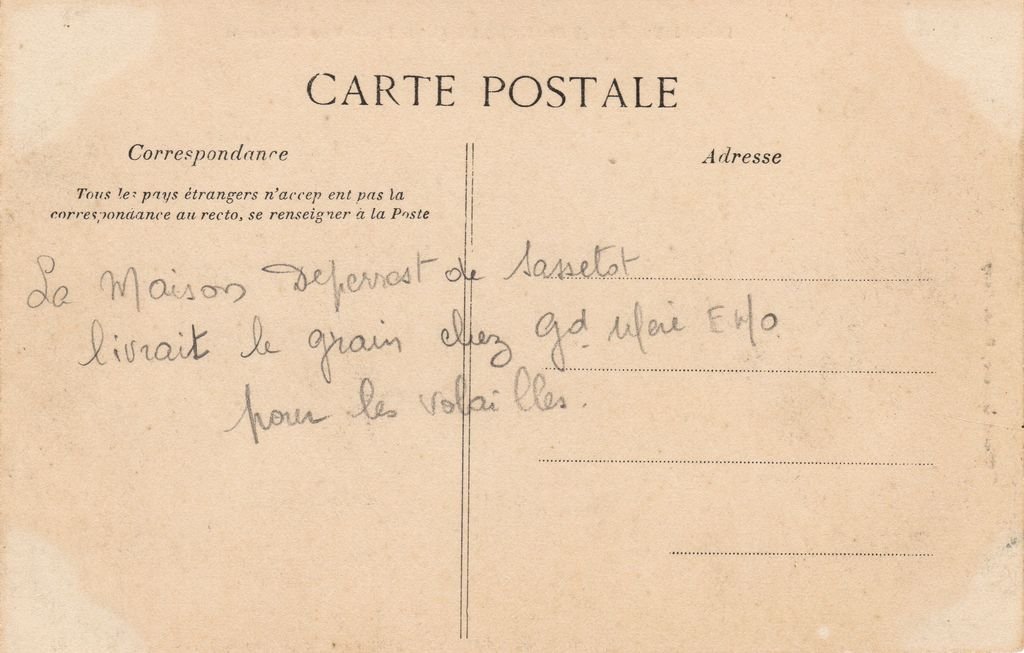 CARTE POSTALE
Correspondance
Adresse
Tous les pays étrangers n'acceptent pas la
correspondance au recto, se renseigner à la Poste
La Maison de Sassetot
livrait le grain chez Gd Mère
pour les volailles.